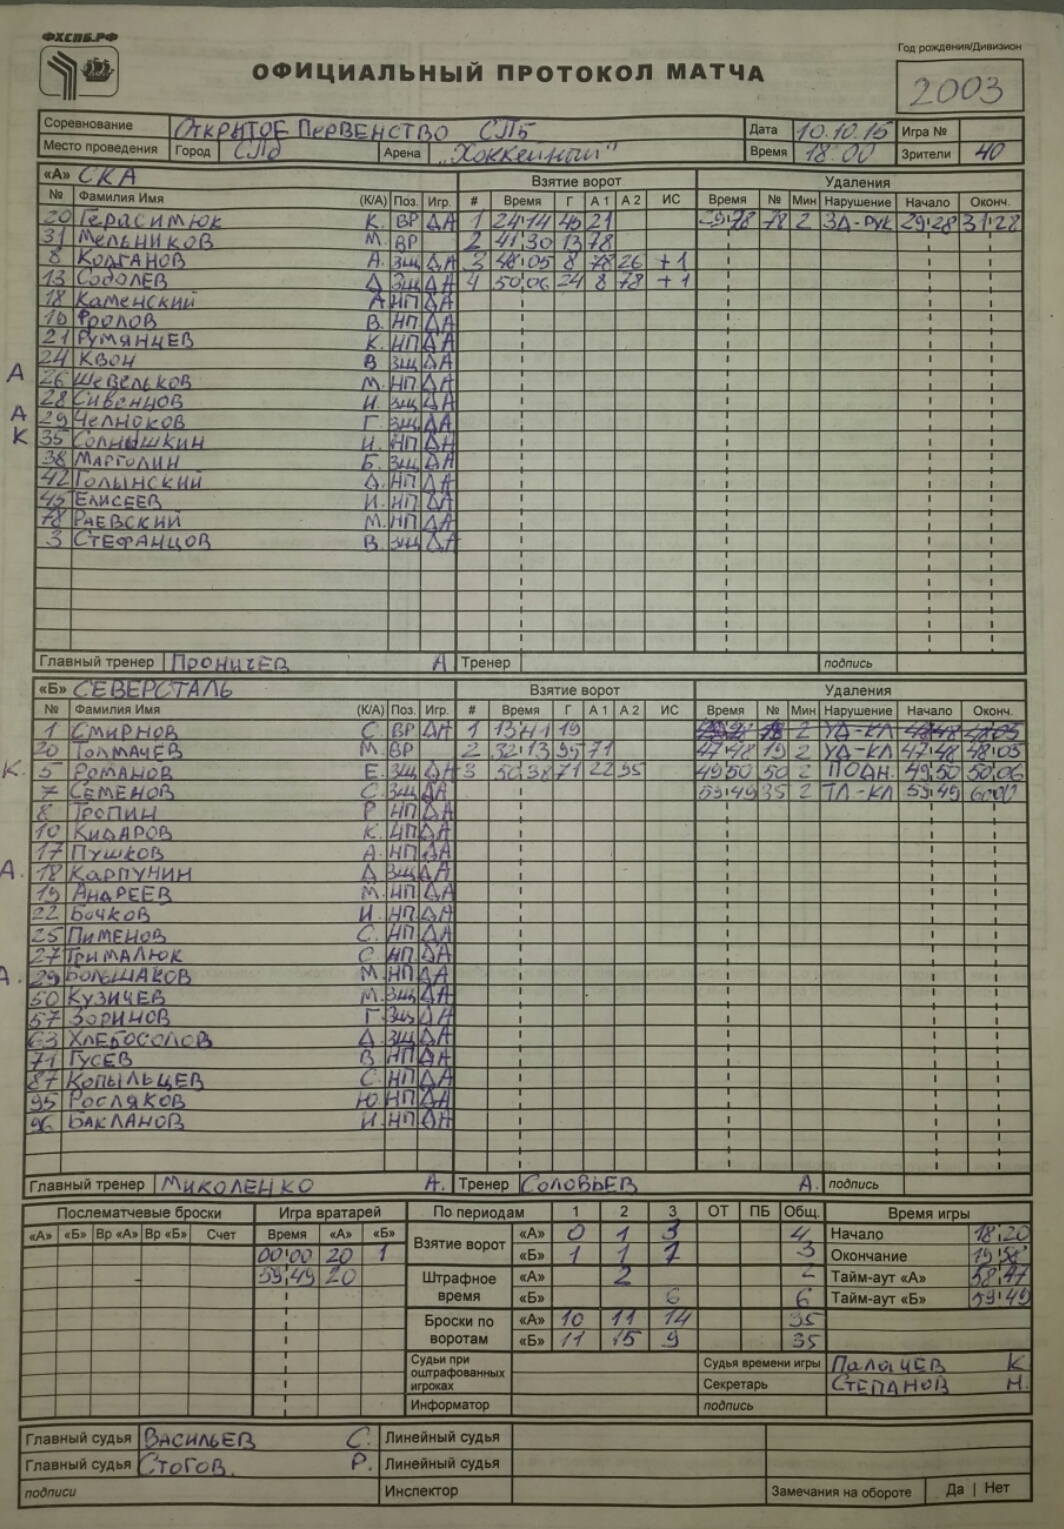 ФХСПБ.РФ
Год рождения/Дивизион
ОФИЦИАЛЬНЫЙ ПРОТОКОЛ МАТЧА
2003
Соревнование ОТКРЫТОЕ ПЕРВЕНСТВО СПБ Дата 10.10.15 Игра №
Место проведения Город СПб Арена „Хоккейный" Время 18:00 Зрители 40
«А» СКА Взятие ворот Удаления
№ Фамилия Имя (К/А) Поз. Игр. # Время Г А 1 А 2 ИС Время № Мин Нарушение Начало Оконч.
20 Герасимюк К. ВР ДА 1 24:14 45 21 29:28 78 2 ЗД-РУК 29:28 31:28
31 Мельников М. ВР 2 41:30 13 78
8 Колганов А. ЗЩ ДА 3 48:05 8 78 26 +1
13 Соболев Д ЗЩ ДА 4 50:06 24 8 78 +1
18 Каменский А НП ДА
19 Фролов В. НП ДА
21 Румянцев К. НП ДА
24 Квон В. ЗЩ ДА
А 26 Шевельков М. НП ДА
28 Сивенцов И. ЗЩ ДА
А 29 Челноков Г. ЗЩ ДА
К 35 Солнышкин И. НП ДА
38 Марголин Б. ЗЩ ДА
42 Голынский Д. НП ДА
45 Елисеев И. НП ДА
78 Раевский М. НП ДА
3 Стефанцов В. ЗЩ ДА
Главный тренер Проничев А Тренер подпись
«Б» СЕВЕРСТАЛЬ Взятие ворот Удаления
№ Фамилия Имя (К/А) Поз. Игр. # Время Г А 1 А 2 ИС Время № Мин Нарушение Начало Оконч.
1 Смирнов С. ВР ДА 1 13:41 19 2 УД-КЛ 48:05
20 Толмачев М. ВР 2 32:13 95 71 47:48 19 2 УД-КЛ 47:48 48:05
К. 5 Романов Е. ЗЩ ДА 3 50:38 71 22 95 49:50 50 2 ПОДН. 49:50 50:06
7 Семенов С. ЗЩ ДА 59:49 35 2 ТЛ-КЛ 59:49 60:00
8 Тропин Р НП ДА
10 Кидаров К. НП ДА
17 Пушков А. НП ДА
А. 18 Карпунин Д ЗЩ ДА
19 Андреев М. НП ДА
22 Бочков И. НП ДА
25 Пименов С. НП ДА
27 Трималюк С. НП ДА
А. 29 Большаков М. НП ДА
50 Кузичев М. ЗЩ ДА
57 Зоринов Г. ЗЩ ДА
63 Хлебосолов Д. ЗЩ ДА
71 Гусев В НП ДА
87 Копыльцев С. НП ДА
95 Росляков Ю. НП ДА
96 Бакланов И. НП ДА
Главный тренер Миколенко А. Тренер Соловьев А. подпись
Послематчевые броски Игра вратарей По периодам 1 2 3 ОТ ПБ Общ. Время игры
«А» «Б» Вр «А» Вр «Б» Счет Время «А» «Б» Взятие ворот «А» 0 1 3 4 Начало 18:20
00:00 20 1 «Б» 1 1 1 3 Окончание 19:58
59:49 20 Штрафное время «А» 2 2 Тайм-аут «А» 58:47
«Б» 6 6 Тайм-аут «Б» 59:49
Броски по воротам «А» 10 11 14 35
«Б» 11 15 9 35
Судьи при оштрафованных игроках Судья времени игры Палачев К
Секретарь Степанов Н.
Информатор подпись
Главный судья Васильев С. Линейный судья
Главный судья Стогов. Р. Линейный судья
подписи Инспектор Замечания на обороте Да | Нет